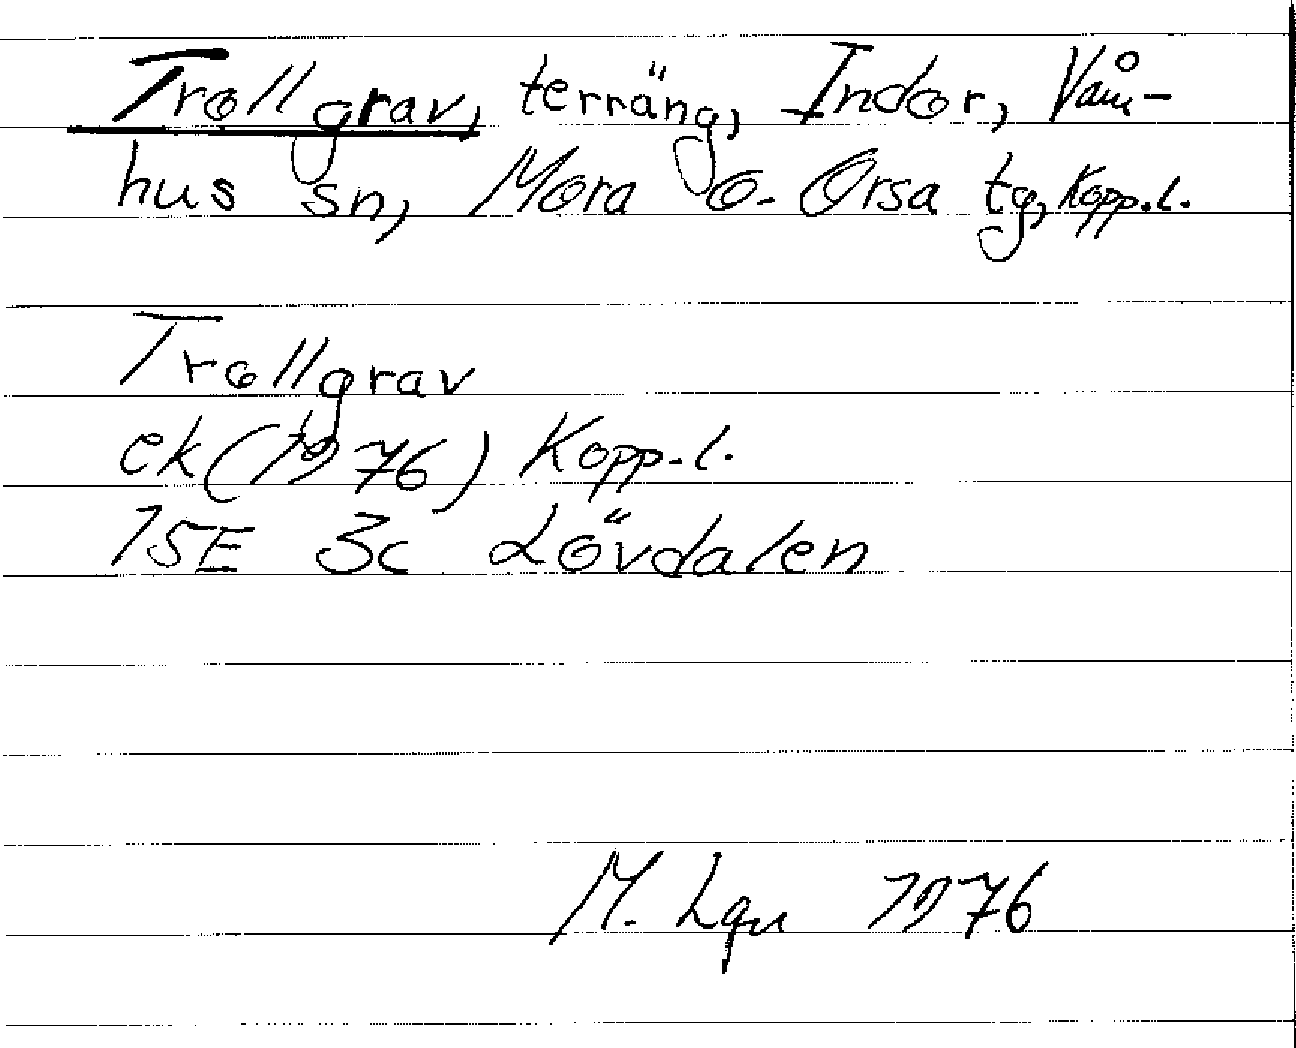 Trollgrav, terräng, Indor, Våm-
hus sn, Mora o. Orsa tg, Kopp.l.
Trollgrav
ek(1976) Kopp.l.
15E 3c Lövdalen
M. Lgn 1976